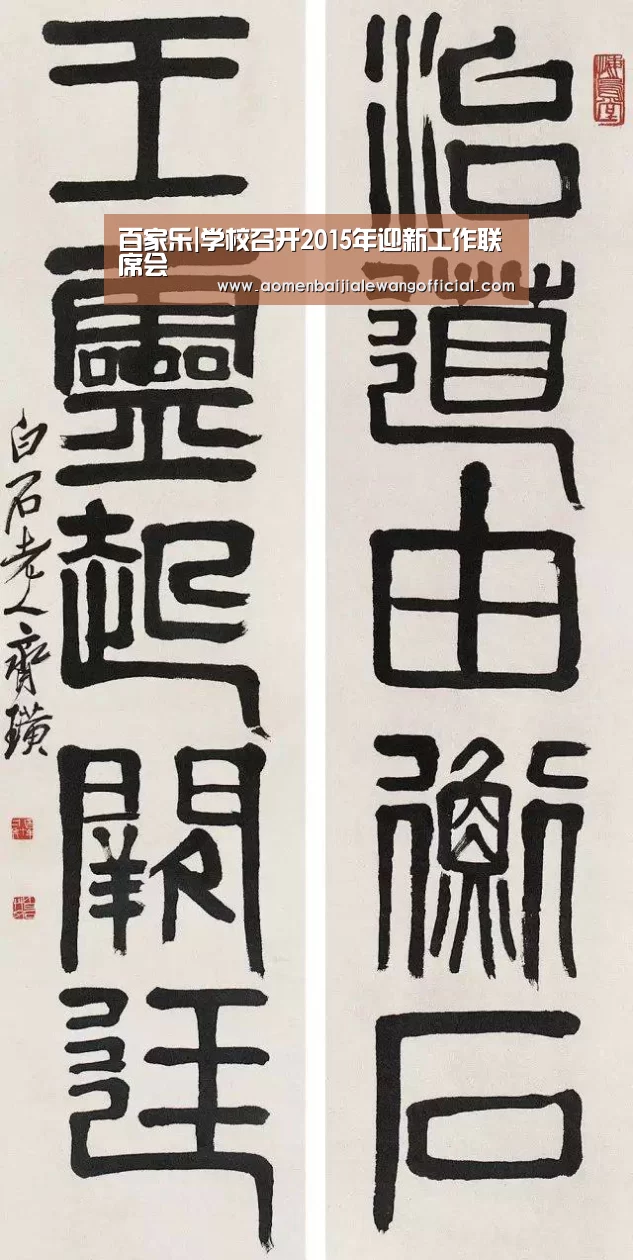 百家乐|学校召开2015年迎新工作联
席会
www.aomenbaijialewangofficial.com
治道由衡石
王靈起闕廷
白石老人齊璜